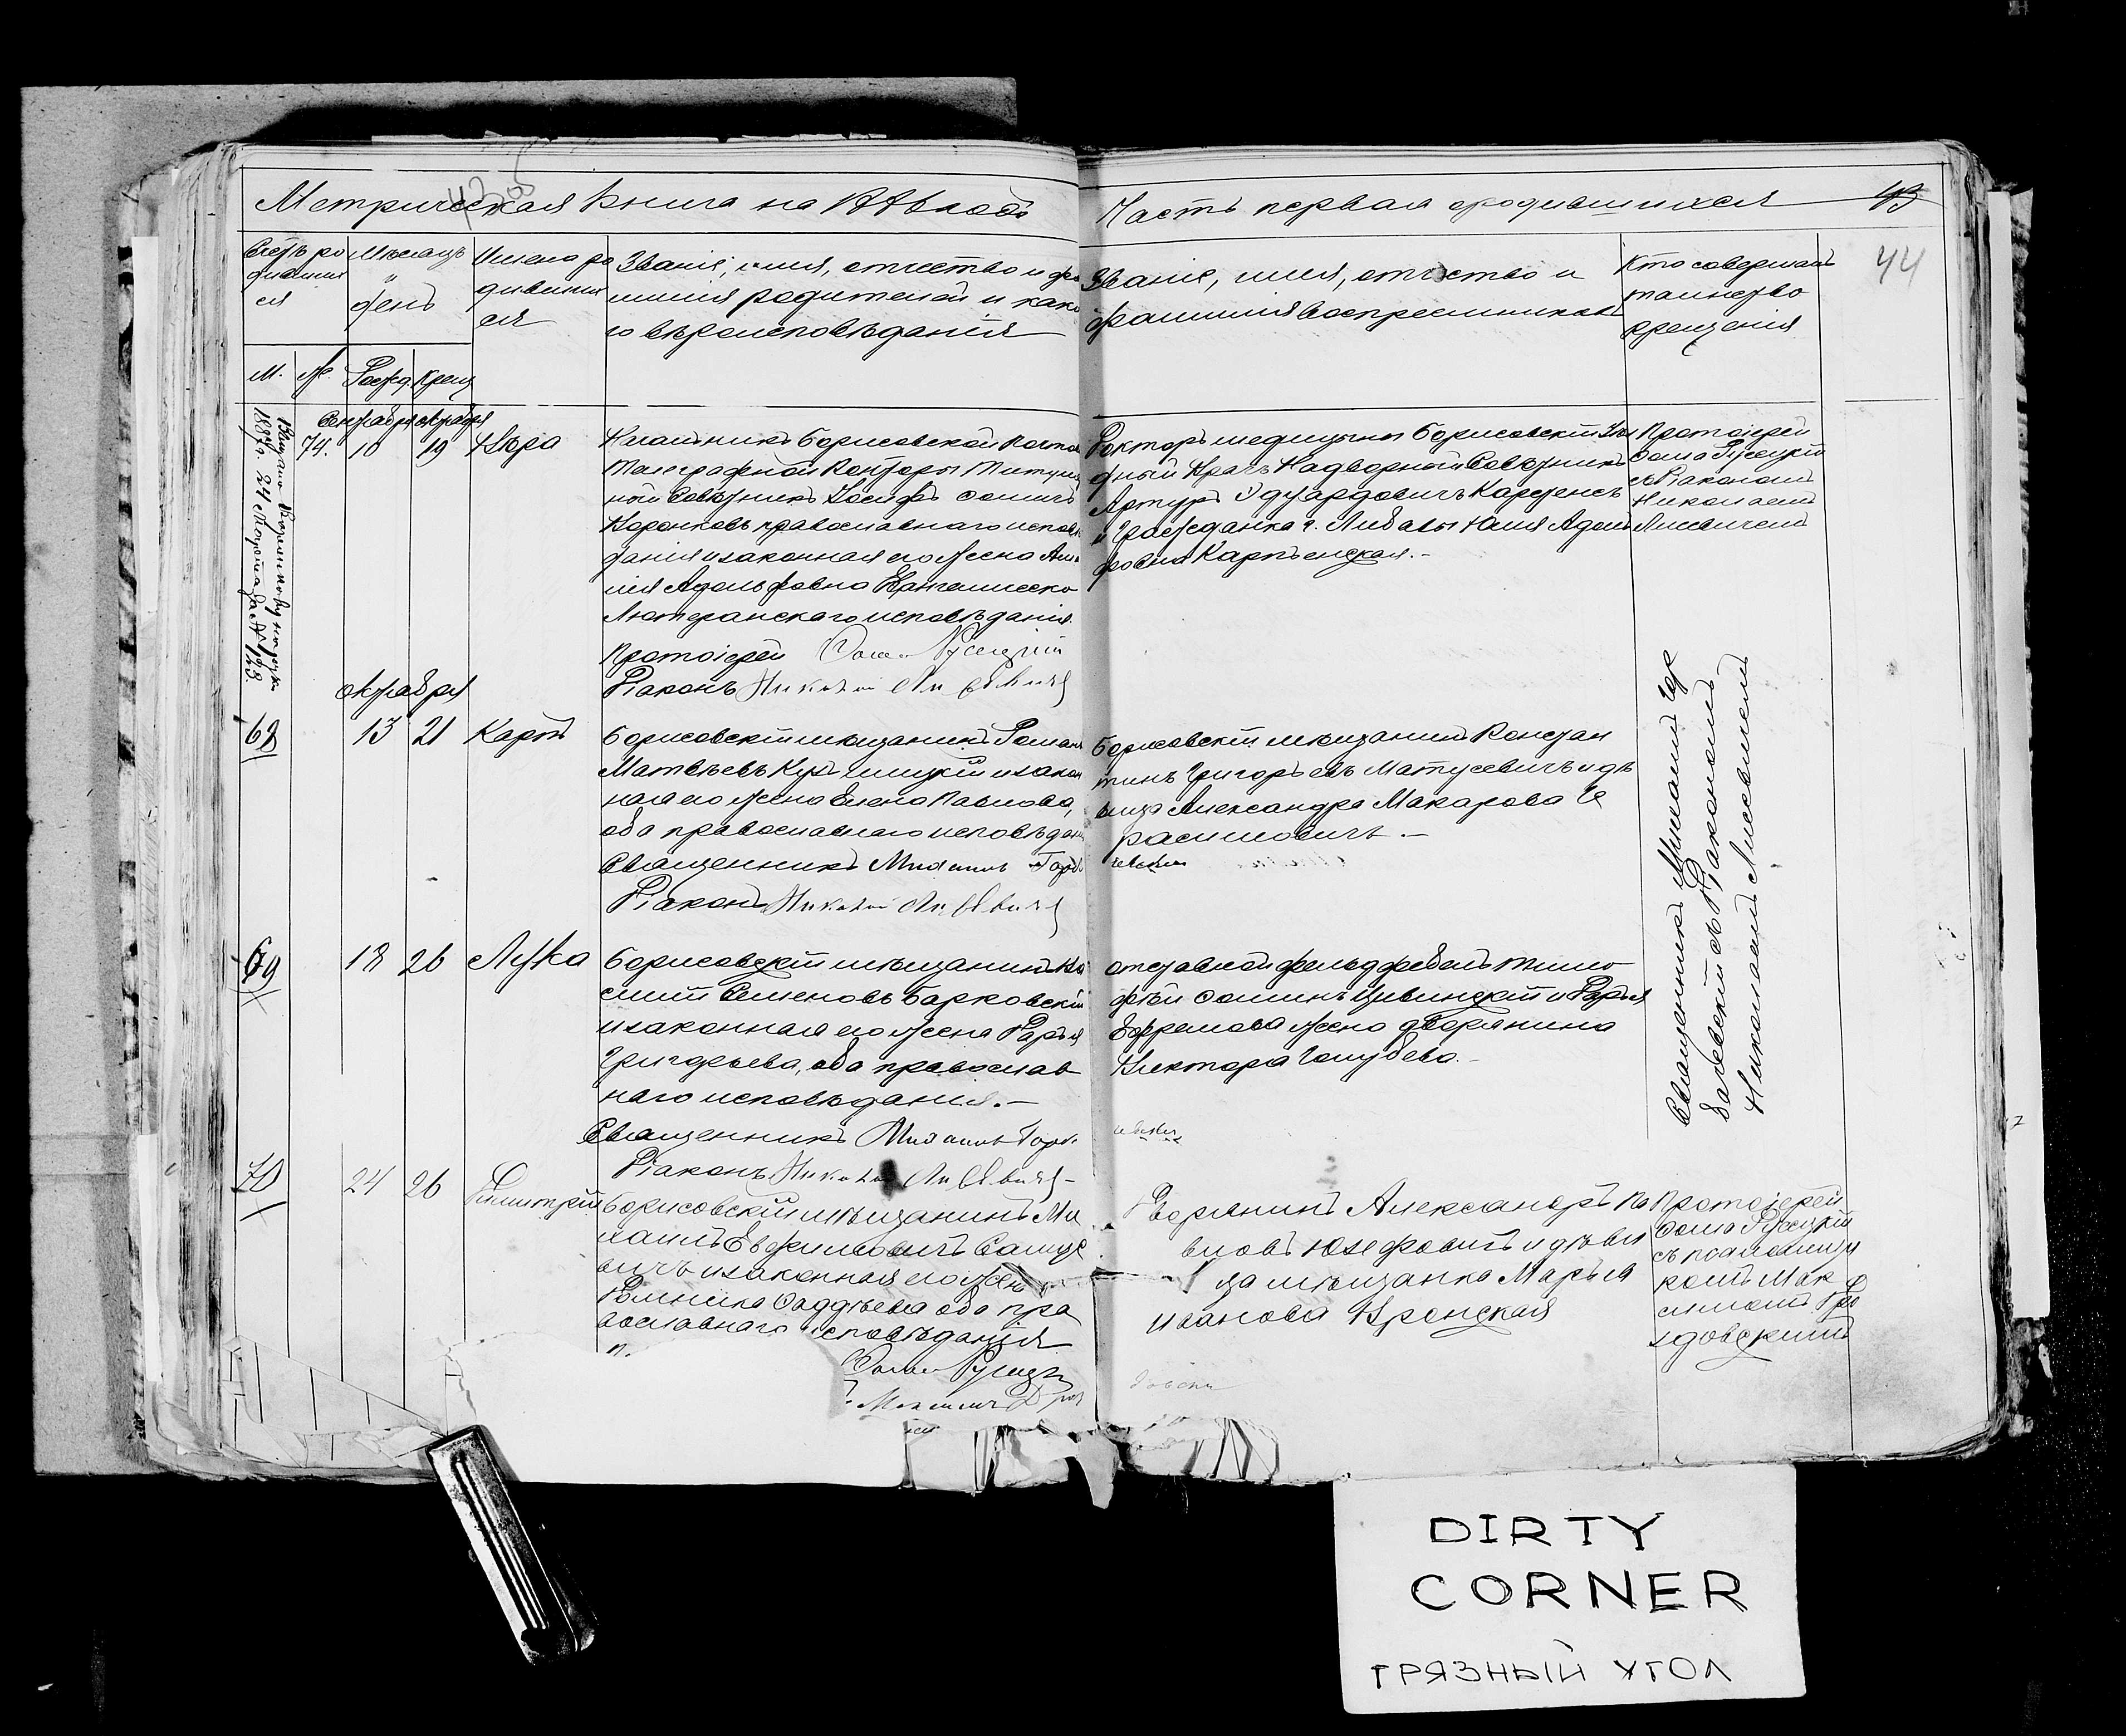 Метрическая Книга на 188 годъ
Часть первая о родившихся
43
44
Счетъ ро
дивших
ся
Мѣсяцъ
и
день
Имена ро
дивших
ся
Званіе, имя, отчество и фа
милія родителей и како
го вѣроисповѣданія
Званіе, имя, отчество и
фамилія воспреемниковъ
Кто совершалъ
таинство
крещенія
М.
Ж.
Рожд.
Крещ
Сентября октября
74.
10
19
Вѣра
Начальникъ Борисовской Почтово
Телеграфной Конторы Титуляр
ный Совѣтникъ Іосифъ Ѳомичъ
православнаго исповѣ
данія и законная его жена
Адольфовна Евангелическо
Лютеранскаго исповѣданія.
Протоіерей Ѳома Русецкій
Діаконъ Николай Лисевичъ
Докторъ медицины Борисовскій Уѣз
дный Врачъ Надворный Совѣтникъ
Артуръ Эдуардовичъ
и Гражданка г. Либавы Юлія Адоль
фовна
Протоіерей
Ѳома Русецкій
съ Діакономъ
Николаемъ
Лисевичемъ
1887 г. 24 Марта за № 123.
октября
68
13
21
Карпъ
Борисовскій мѣщанинъ Романъ
Матвѣевъ и закон
ная его жена Елена Павлова,
оба православнаго исповѣдан
Священникъ Михаилъ Горба
чевскій
Діаконъ Николай Лисевичъ
Борисовскій мѣщанинъ Констан
тинъ Григорьевъ Матусевичъ и дѣ
вица Александра Макарова Ге
расимовичъ.-
Священникъ Михаилъ Гор
бачевскій съ Діакономъ
Николаемъ Лисевичемъ
69
18
26
Лука
Борисовскій мѣщанинъ Ва
силій Семеновъ Барковскій
и законная его жена Дарья
Григорьева, оба православ
наго исповѣданія.-
Священникъ Михаилъ Горба
чевскій
Діаконъ Николай Лисевичъ
отставной фельдфебель Тимо
фей Ѳоминъ Цивинскій и Дарья
Ефремова жена дворянина
Виктора Голубева.-
70
24
26
Димитрій
Борисовскій мѣщанинъ Ми
хаилъ Евфимовичъ
и законная его жена
Домника Ѳаддѣева оба пра
вославнаго исповѣданія
Ѳома Русецкій
Максимъ Дроз
довскій
Дворянинъ Александръ Па
вловъ Юзефовичъ и дѣви
ца мѣщанка Марья
Иванова Вронская
Протоіерей
Ѳома Русецкій
съ псаломщи
комъ Мак
симомъ Дро
здовскимъ
DIRTY
CORNER
ГРЯЗНЫЙ УГОЛ